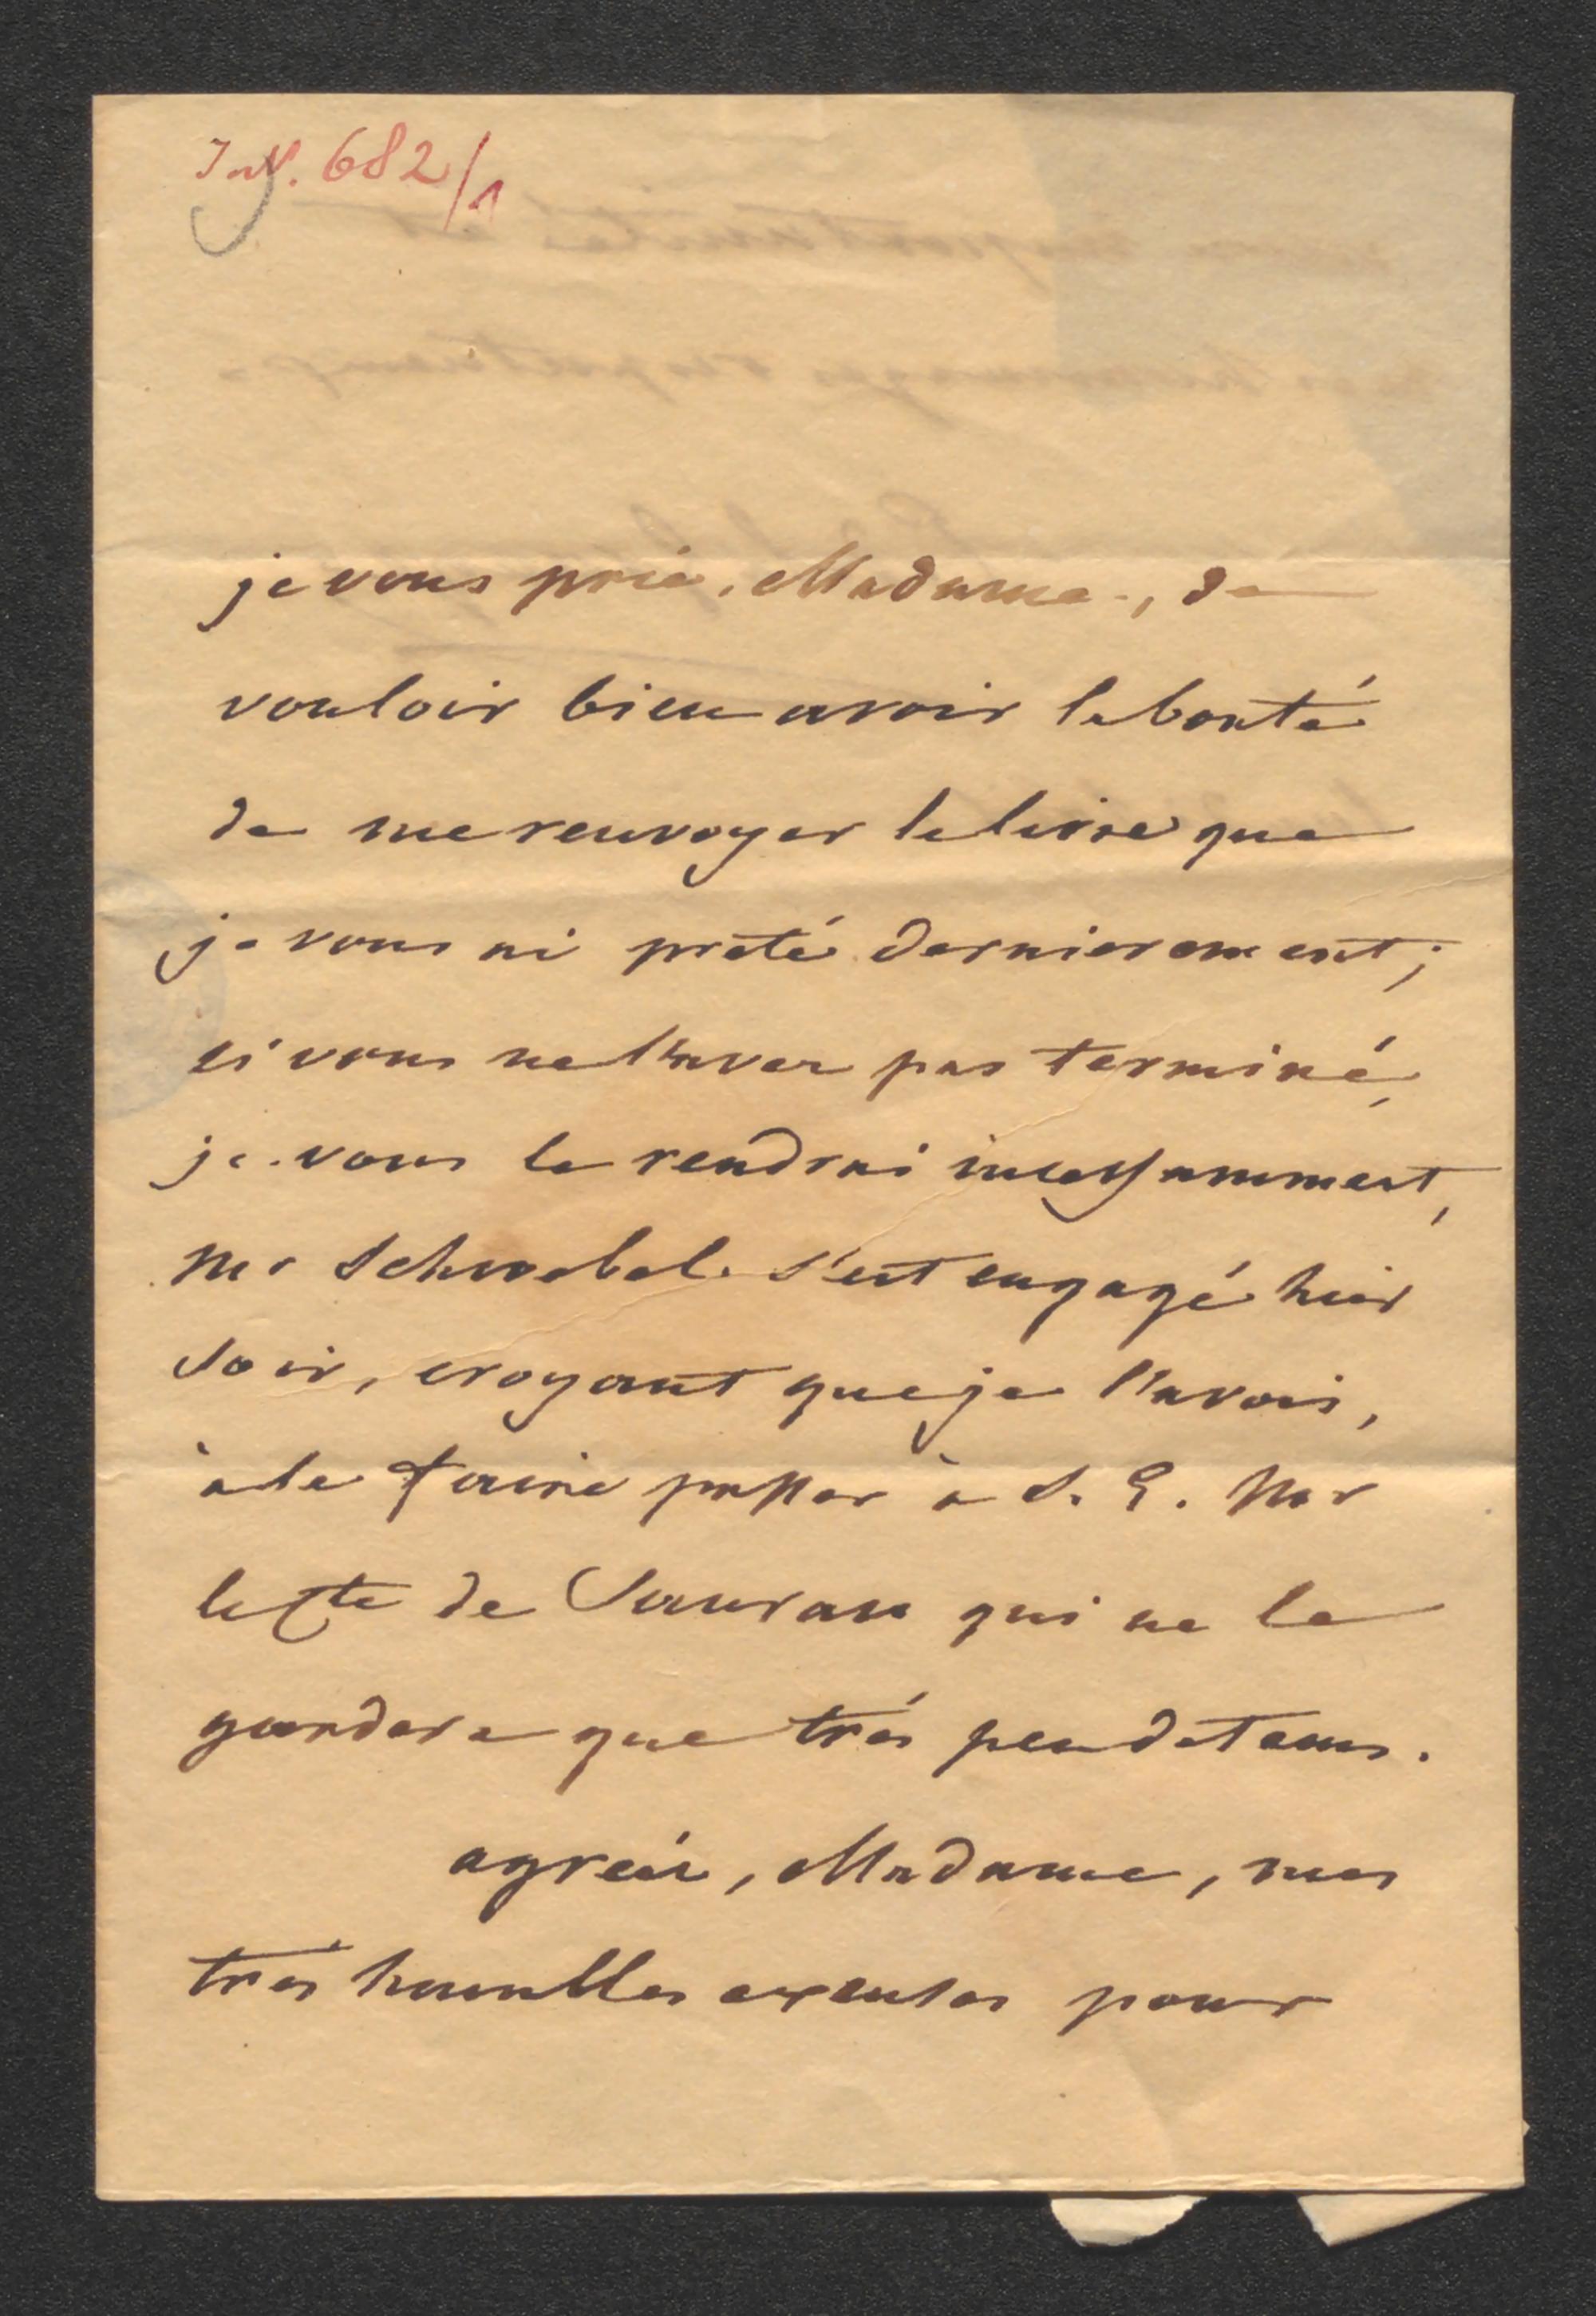 I.N. 682/1
je vous prie, Madame, de
vouloir bien avoir la bonté
de me renvoyer le livre que
je vous ai preté dernierement;
si vous ne l'avez pas terminé,
je vous le rendrai incessamment,
Mr Schwebel s'est engagé hier
soir, croyant que je l'avois,
à le faire passer à S. E. Mr
le Cte de Sauran qui ne le
gardera que trés peu de tems.
agreéz, Madame, mes
trés humbles excuses pour